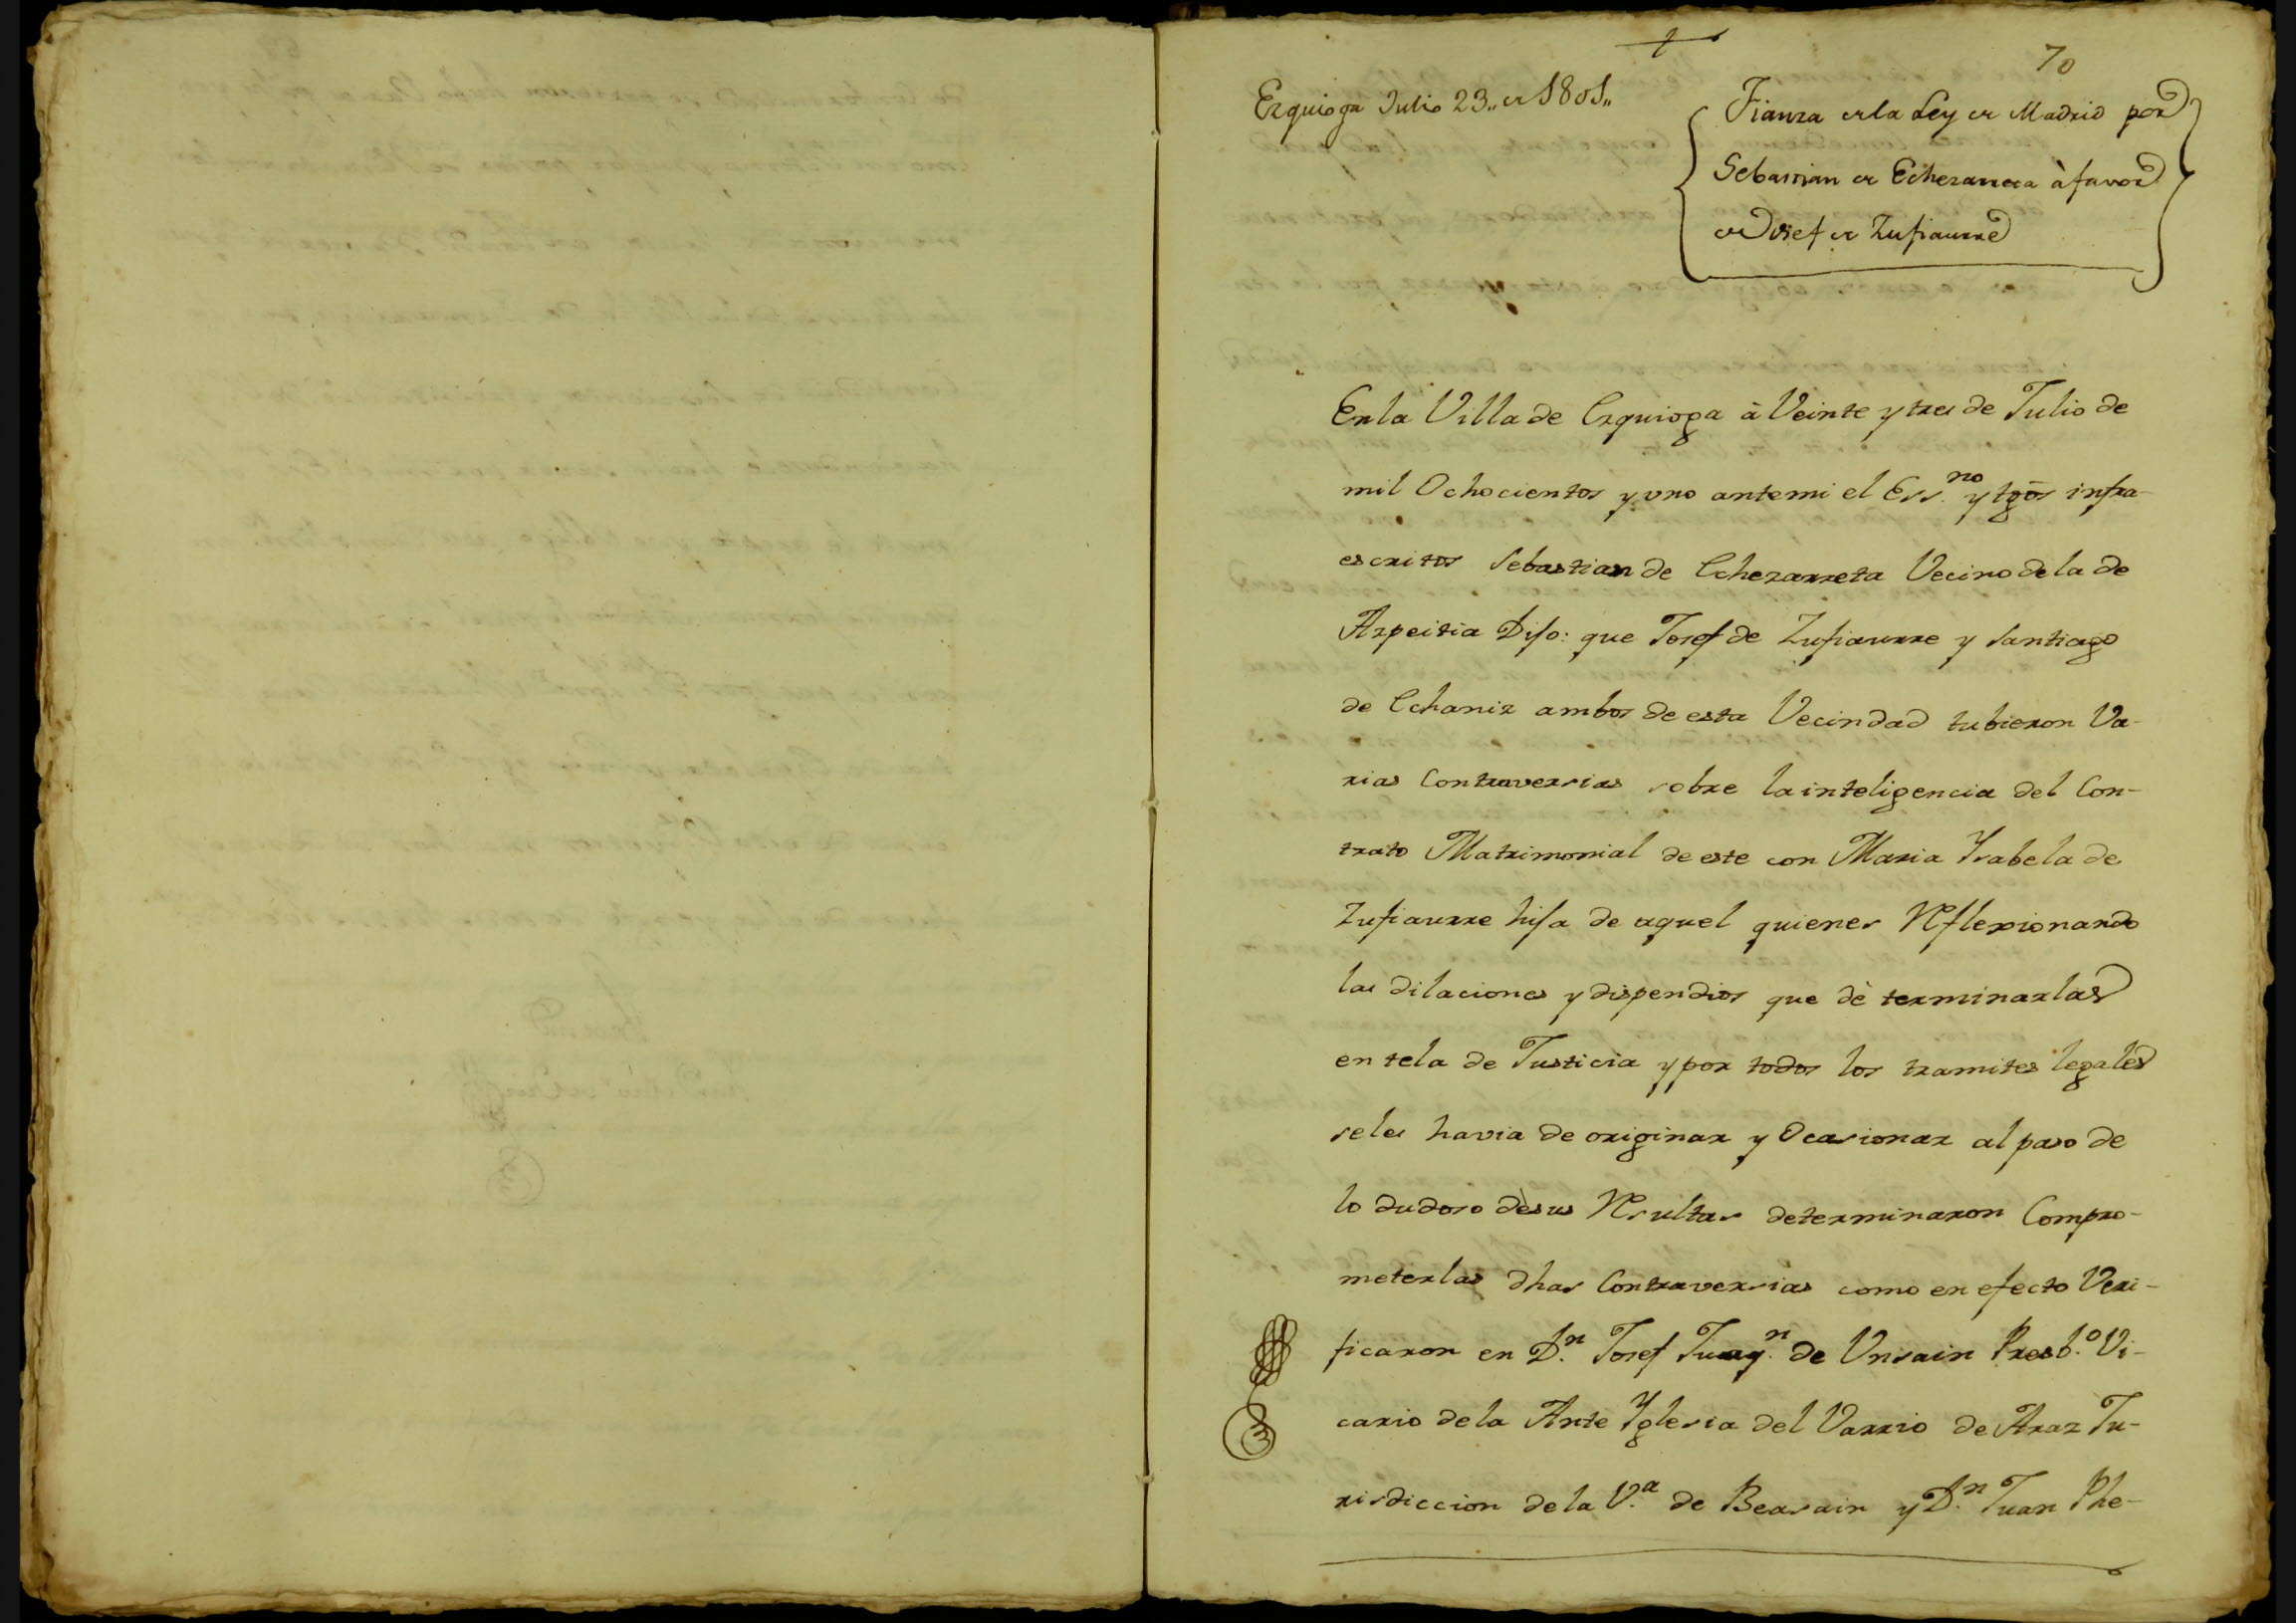 70
Ezquioga Julio 23,, de 1801,,
Fianza de la Ley de Madrid por
Sebastian de Echezarreta à favor
de Josef de Zufiaurre
En la Villa de Ezquioga à Veinte y tres de Julio de
mil Ochocientos y uno antemi el Ess.no y tgōs infra-
escritos Sebastian de Echezarreta Vecino dela de
Azpeitia Dijo: que Josef de Zufiaurre y Santiago
de Echaniz ambos de esta Vecindad tubieron Va-
rias Contraversias sobre la inteligencia del Con-
trato Matrimonial de este con Maria Ysabela de
Zufiaurre hija de aquel quienes Reflexionando
las dilaciones y dispendios que dè terminarlas
en tela de Justicia y por todos los tramites legales
seles havia de originar y Ocasionar al paso de
lo dudoso dèsus Resultas determinaron Compro-
meterlas dhas Contraversias como en efecto Veri-
ficaron en D.n Josef Juaq.n de Unsain Presb.o Vi-
cario dela Ante Yglesia del Varrio de Araz Ju-
risdiccion dela V.a de Beasain y D.n Juan Phe-